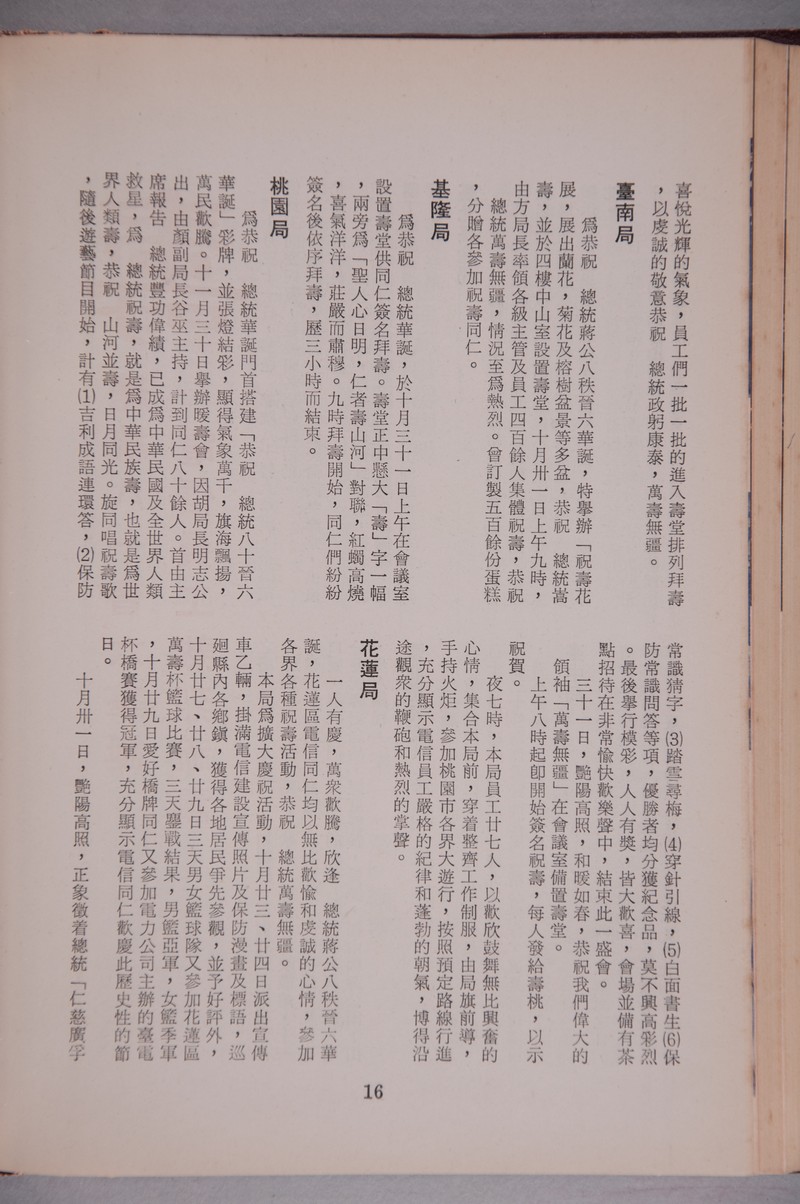 喜悅光輝的氣象，員工們一批一批的進入壽堂排列拜壽
，以虔誠的敬意恭祝　總統政躬康泰，萬壽無疆。
臺南局
為恭祝　總統蔣公八秩晉六華誕，特舉辦「祝壽花
展，展出蘭花，菊花及榕樹盆景等多盆，恭祝　總統嵩
壽，並於四樓中山室設置壽堂，十月卅一日上午九時，
由方局長率領各級主管及員工四百餘人集體祝壽，恭祝
總統萬壽無疆，情況至為熱烈。曾訂製五百餘份蛋糕
，分贈各參加祝壽同仁。
基隆局
為恭祝　總統華誕，於十月三十一日上午在會議室
設置壽堂供同仁簽名拜壽。壽堂正中懸大「壽」字一幅
，兩旁為「聖人心日明，仁者壽山河」對聯，紅蠋高燒
，喜氣洋洋，莊嚴而肅穆。九時拜壽開始，同仁們紛紛
簽名後依序拜壽，歷三小時而結束。
桃園局
為恭祝　總統華誕門首搭建「恭祝　總統八十晉六
華誕」彩牌，並張燈結彩，顯得氣象萬千，旗海飄揚，
萬民歡騰。十一月三十日舉辦暖壽會，因胡局長明志公
出，由顏副局長谷巫主持，計到同仁八十餘人。首由主
席報告　總統豐功偉績，已成為中華民國及全世界人類
救星，為　總統祝壽，就是為中華民族壽，也就是為世
界人類壽，恭祝　山河並壽，日月同光。旋同唱祝壽歌
，隨後遊藝節目開始，計有⑴吉利成語連環答，⑵保防
常識猜字，⑶踏雪尋梅，⑷穿針引線，⑸白面書生⑹保
防常識問答等項，優勝者均分獲紀念品，莫不興高彩烈
。最後舉行模彩，人人有獎，皆大歡喜，會場並備有茶
點招待在非常愉快歡樂聲中，結束此一盛會。
三十一日，艷陽高照，和暖如春，恭祝我們偉大的
領袖「萬壽無疆」在會議室備置壽堂。
上午八時起卽開始簽名祝壽，每人發給壽桃，以示
祝賀。
夜七時，本局員工廿七人，以歡欣鼓舞無比興奮的
心情，集合本局前，穿着整齊工作制服，由局旗前導，
手持火炬，參加桃園市各界大遊行，按照預定路線行進
，充分顯示電信員工嚴格的紀律和蓬勃的朝氣，博得沿
途觀衆的鞭砲和熱烈的掌聲。
花蓮局
一人有慶，萬衆歡騰，欣逢　總統蔣公八秩晉六華
誕，花蓮區電信同仁均以無比歡愉和虔誠的心情，參加
各界各種祝壽活動，恭祝　總統萬壽無疆。
本局為擴大慶祝活動，十月廿三、廿四日派出宣傳
車乙輛，掛滿電信建設宣傳照片及保防漫畫及標語，巡
廻縣內各鄉鎭，獲得各地居民爭先參觀，並予好評外，
十月廿七、廿八、廿九日三天男女籃球隊又參加花蓮區
萬壽杯籃球比賽，三天鏖戰結果，男籃亞軍，女籃季軍
，十月廿九日愛好橋牌同仁又參加電力公司主辦的臺電
杯橋賽獲得冠軍，充分顯示電信同仁歡慶此歷史性的節
日。
十月卅一日，艷陽高照，正象徵着總統「仁慈廣孚
16